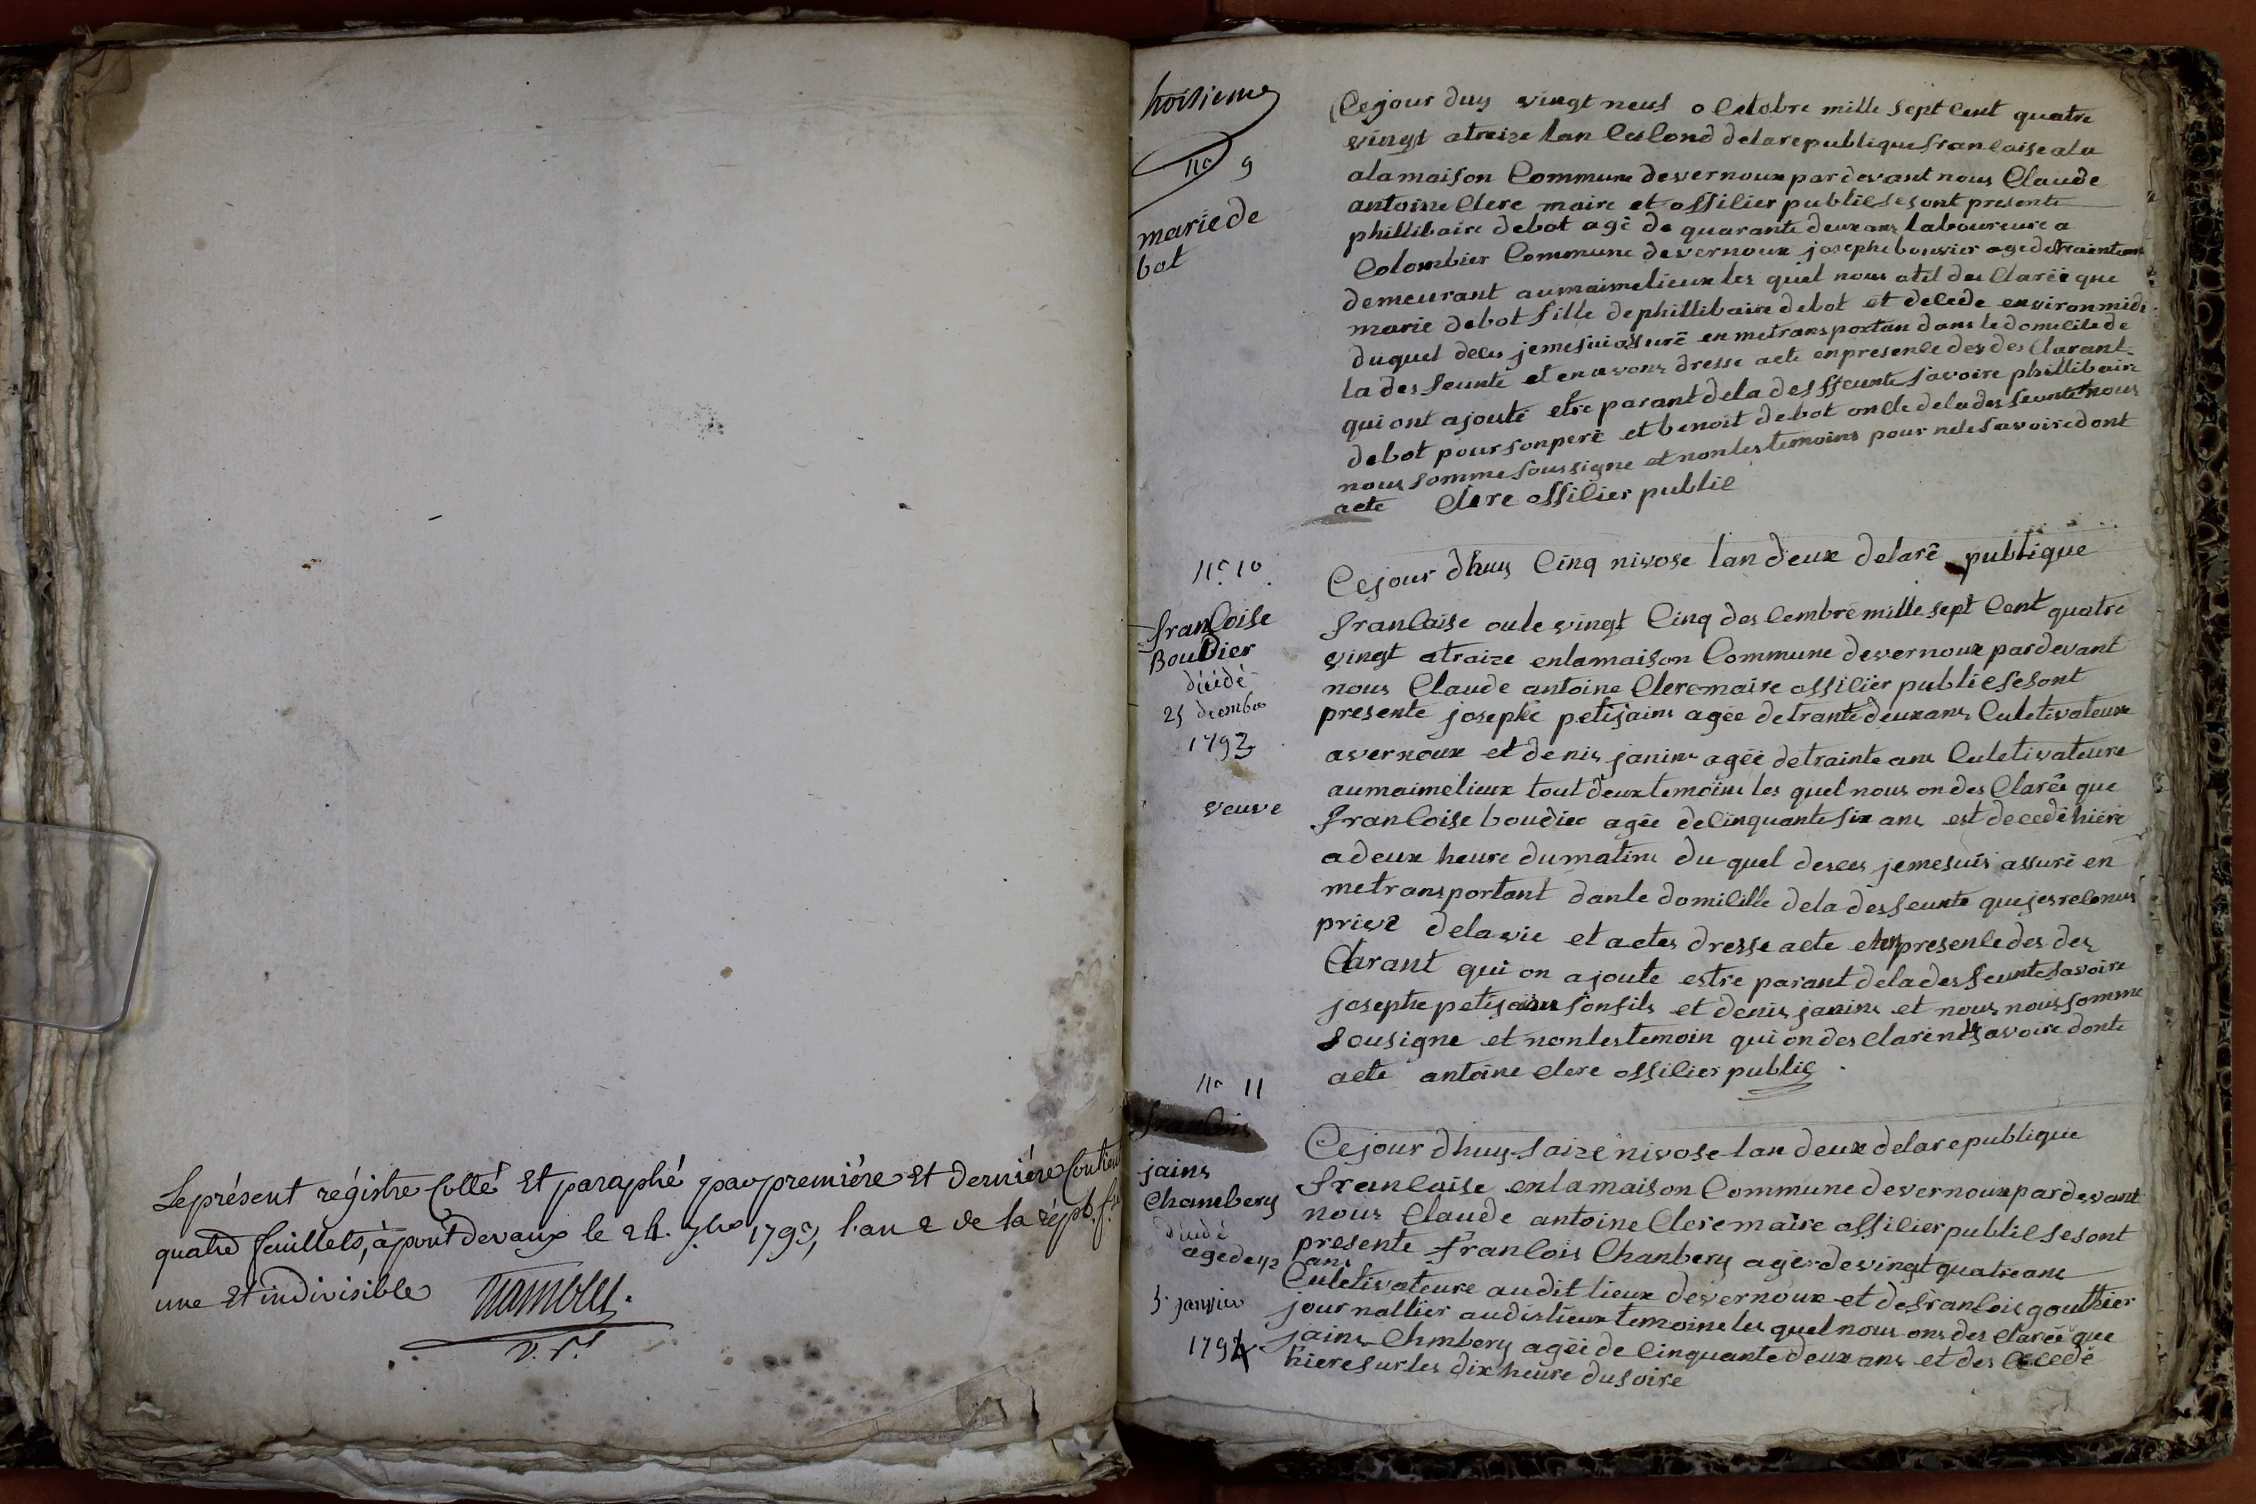 Le présent régistre Cotté Et paraphé par première Et dernière Contient
quatre feuillets, à pont devaux le 24. 7bre 1793, l'an 2 de la répb. f.se
une Et indivisible
hoitieme
n° 9
marie de
bot
Ce jour duy vingt neuf o Cctobre mille sept Cent quatre
vingt atreize lan Ceslond delarepublique francaise ala
ala maison Commune devernoux par devant nous Claude
antoine Clere maire et officier public se sont presente
phillibaire debot agé de quarante deux ans laboureure a
Colombier Commune devernoux josephe bouvier age de trainte ans
demeurant aumaimelieux les quel nous atil des Clarée que
marie debot fille dephillibaire debot et decede environ midi
duquel deces jemesuis assuré en metransportan dans le domicile de
la des feunte et en avons dresse acte en presence des des Clarant
qui ont ajouté etre parant dela des ffeunte savoire phillibaire
debot pour son pere et benoit debot oncle dela des feunte nous
nous somme soussigne et non les temoins pour nele savoire dont
acte Clere officier public
n° 10
francoise
Boudier
décédé
25 décembre
1793
veuve
Ce jour dhuy Cinq nivose lan deux dela ré publique
francaise oule vingt Cinq des Cembre mille sept Cent quatre
vingt atraize enlamaison Commune devernoux pardevant
nous Claude antoine Clere maire officier public se sont
presente josephe petijains agée de trante deux ans Culetivateure
avernoux et denis janins agée de trainte ans Culetivateure
aumaimelieux tout deux temoins les quel nous on des Clarée que
francoise boudier agée de Cinquante six ans est decedé hiere
a deux heure du matins du quel deses jemesuis assuré en
metransportant dan le domicille dela des feunte que jes reconus
privé delavie et actes dresse acte en presence des des
Clarant qui on ajoute estre parant dela des feunte savoire
josephe petijains son fils et denis janins et nous nous somme
sousigne et non les temoin qui on des clare ne le savoire donte
acte antoine clere officier public
n° 11
francois
jains
Chambery
décédé
age de 52 ans
5 janvier
1794
Ce jour dhuy saize nivose lan deux dela republique
francaise enlamaison Commune devernoux par devant
nous Claude antoine Clere maire officier public se sont
presente francois Chanbery agée de vingt quatre ans
Culetivateure audit lieux devernoux et de francois gouthier
journallier audislieux temoins les quel nous ons des Clarée que
jains Chmbery agée de Cinquante deux ans et des cedé
hiere sur les dix heure du soire